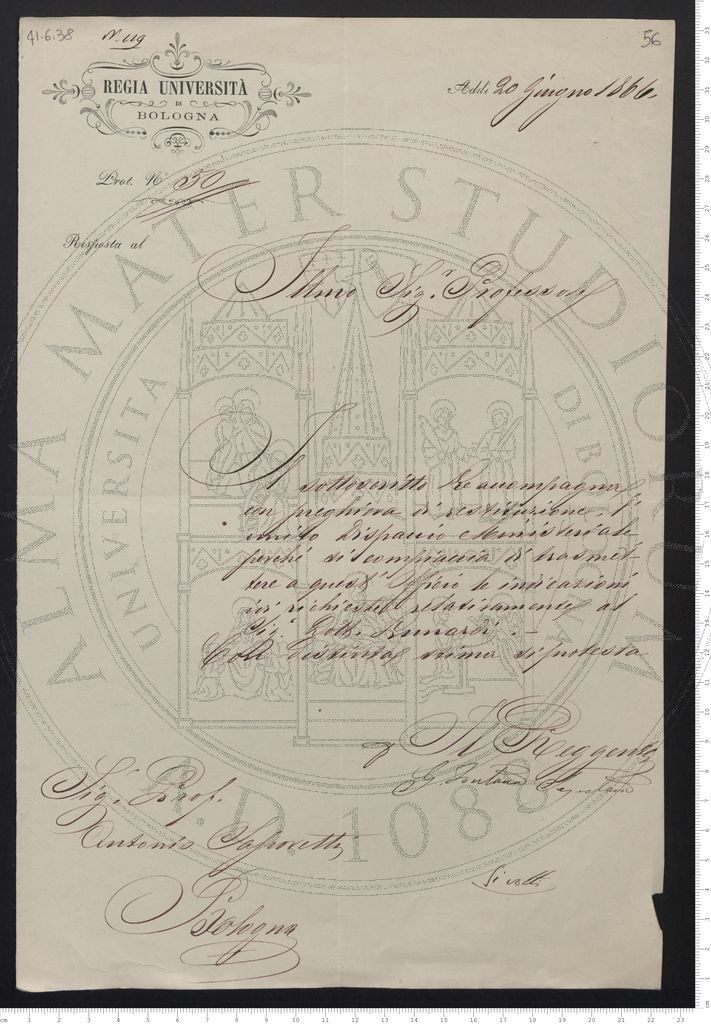 41.6.38
N. 119
56
REGIA UNIVERSITÀ
DI
BOLOGNA
Addì 20 Giugno 1866.
Prot. N.º 50
Risposta al
Illmo Sig.r Professore
Il sottoscritto Le accompagna
con preghiera di restituzione, l'
unito Dispaccio Ministeriale
perchè si compiaccia di trasmet-
tere a quest'Uffizio le indicazioni
ivi richieste relativamente al
Sig.r Dott.
Con distinta stima si protesta
Il Reggente
Sig.r Prof.
Antonio Saporetti
Bologna
Si volti
ALMA MATER STUDIORUM
UNIVERSITA DI BOLOGNA
A.D. 1088